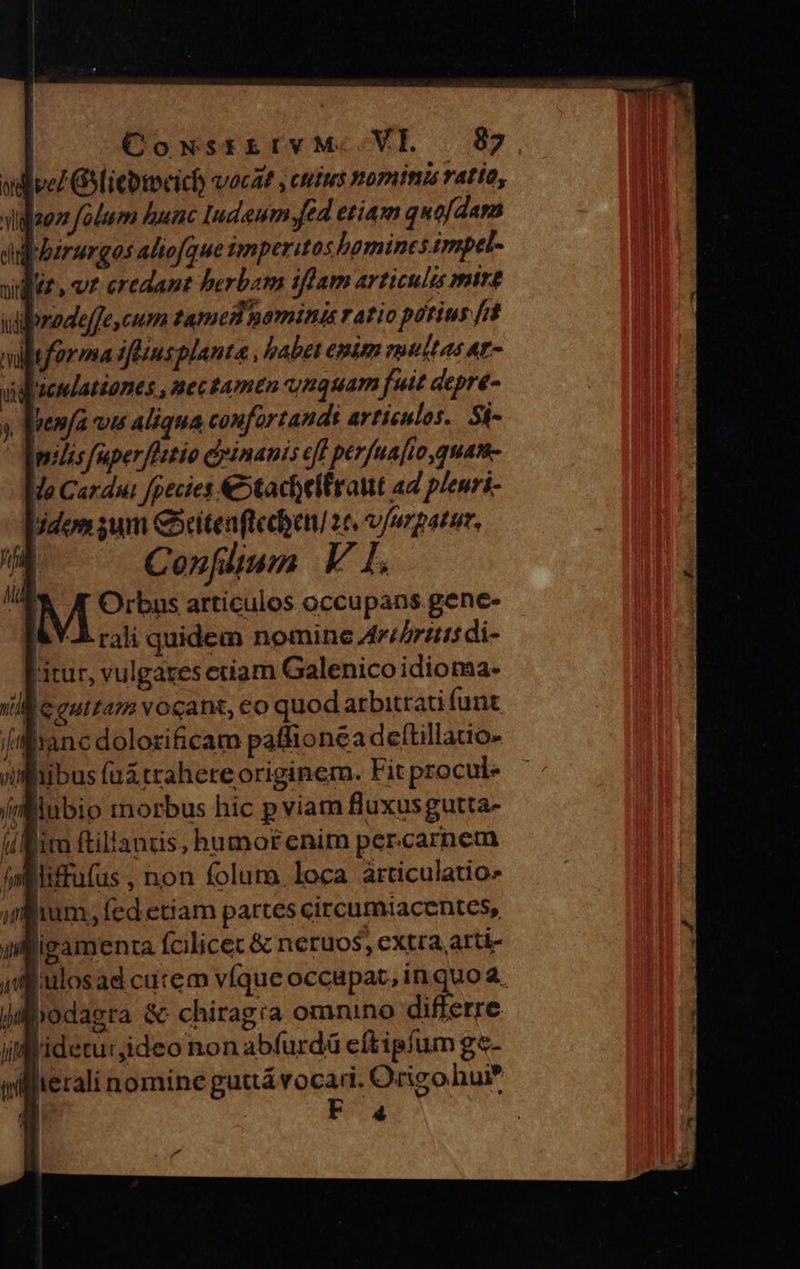 CONSILIVM VI. 87
vel Gliedtweich vocat, cuius nominis ratio,
non ſolum hunc Iudæum, ſed etiam quoſdam
chirurgos alioſque imperitos homines impel-
lit, vt credant herbam iſtam articulis mire
prodeſſe, cum tamen nominis ratio potius ſit
forma iſtius plantæ, habet enim multas ar-
ticulationes, nec tamen vnquam fuit depre-
henſa vis aliqua confortandi articulos. Si-
milis ſuperſtitio & inanis eſt perſuaſio, quan-
do Cardui ſpecies Stachelkraut ad pleuri-
tidem zum Seitenſtechen/ ꝛc. vſurpatur.
Conſilium VI.
MOrbus articulos occupans gene-
rali quidem nomine Arthritis di-
citur, vulgares etiam Galenico idioma-
te guttam vocant, eo quod arbitrati ſunt
hanc dolorificam paſſionẽ a deſtillatio-
nibus ſuã trahere originem. Fit procul-
dubio morbus hic p viam fluxus gutta-
tim ſtillantis, humor enim per carnem
diffuſus, non ſolum loca articulatio-
num, ſed etiam partes circumiacentes,
ligamenta ſcilicet & neruos, extra arti-
culos ad cutem vſque occupat, in quo à
podagra & chiragra omnino differre
videtur, ideo non abſurdũ eſt ipſum ge-
nerali nomine guttã vocari. Origo huiꝰ
F 4